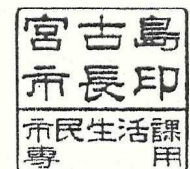 宮古島
市長印
市民生活課
専用